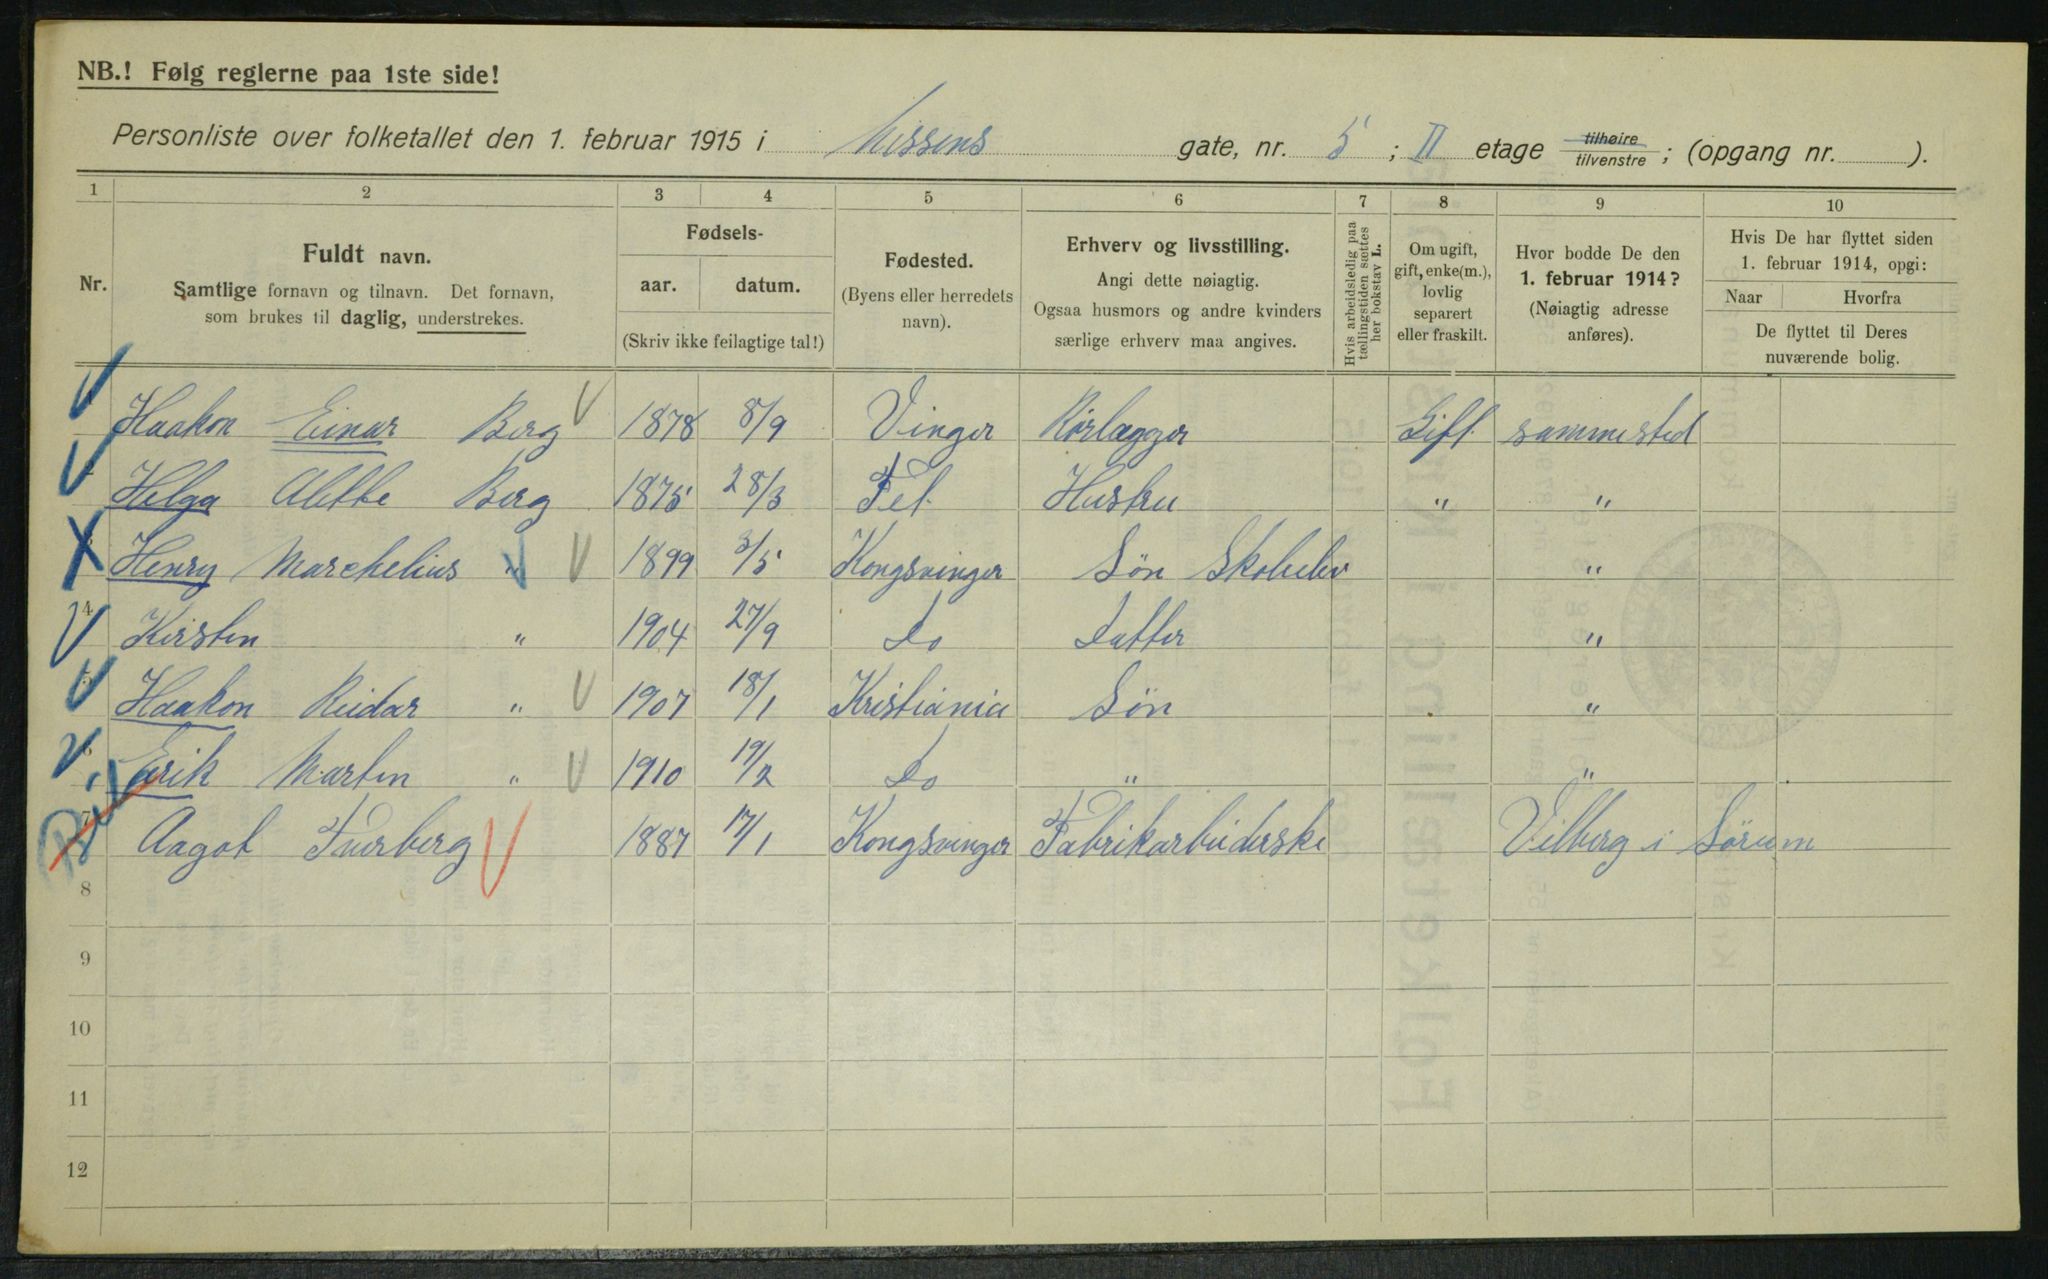 NB.! Følg reglerne paa 1ste side!
Personliste over folketallet den 1. februar 1915 i Nissens gate, nr. 5 ; II etage tilhøire tilvenstre ; (opgang nr. ).
1 2 3 4 5 6 7 8 9 10
Nr.
Fuldt navn.
Samtlige fornavn og tilnavn. Det fornavn,
som brukes til daglig, understrekes.
Fødsels-
aar. datum.
(Skriv ikke feilagtige tal!)
Fødested.
(Byens eller herredets
navn).
Erhverv og livsstilling.
Angi dette nøiagtig.
Ogsaa husmors og andre kvinders
særlige erhverv maa angives.
Hvis arbeidsledig paa
tællingstiden sættes
her bokstav L.
Om ugift,
gift, enke(m.),
lovlig
separert
eller fraskilt.
Hvor bodde De den
1. februar 1914?
(Nøiagtig adresse
anføres).
Hvis De har flyttet siden
1. februar 1914, opgi:
Naar Hvorfra
De flyttet til Deres
nuværende bolig.
Haakon Einar Berg 1878 8/9 Vinger Rørlægger Gift sammested
Helga Alette Berg 1875 28/3 Fet Hustru " "
3 Henry Marchelius " 1899 3/5 Kongsvinger Søn Skoleelev "
4 Kirsten " 1904 27/9 do datter "
5 Haakon Reidar " 1907 18/1 Kristiania Søn "
6 Erik Martin " 1910 19/2 do " "
7 Aagot Furberg 1887 17/1 Kongsvinger Fabrikarbeiderske Vilberg i Sørum
8
9
10
11
12